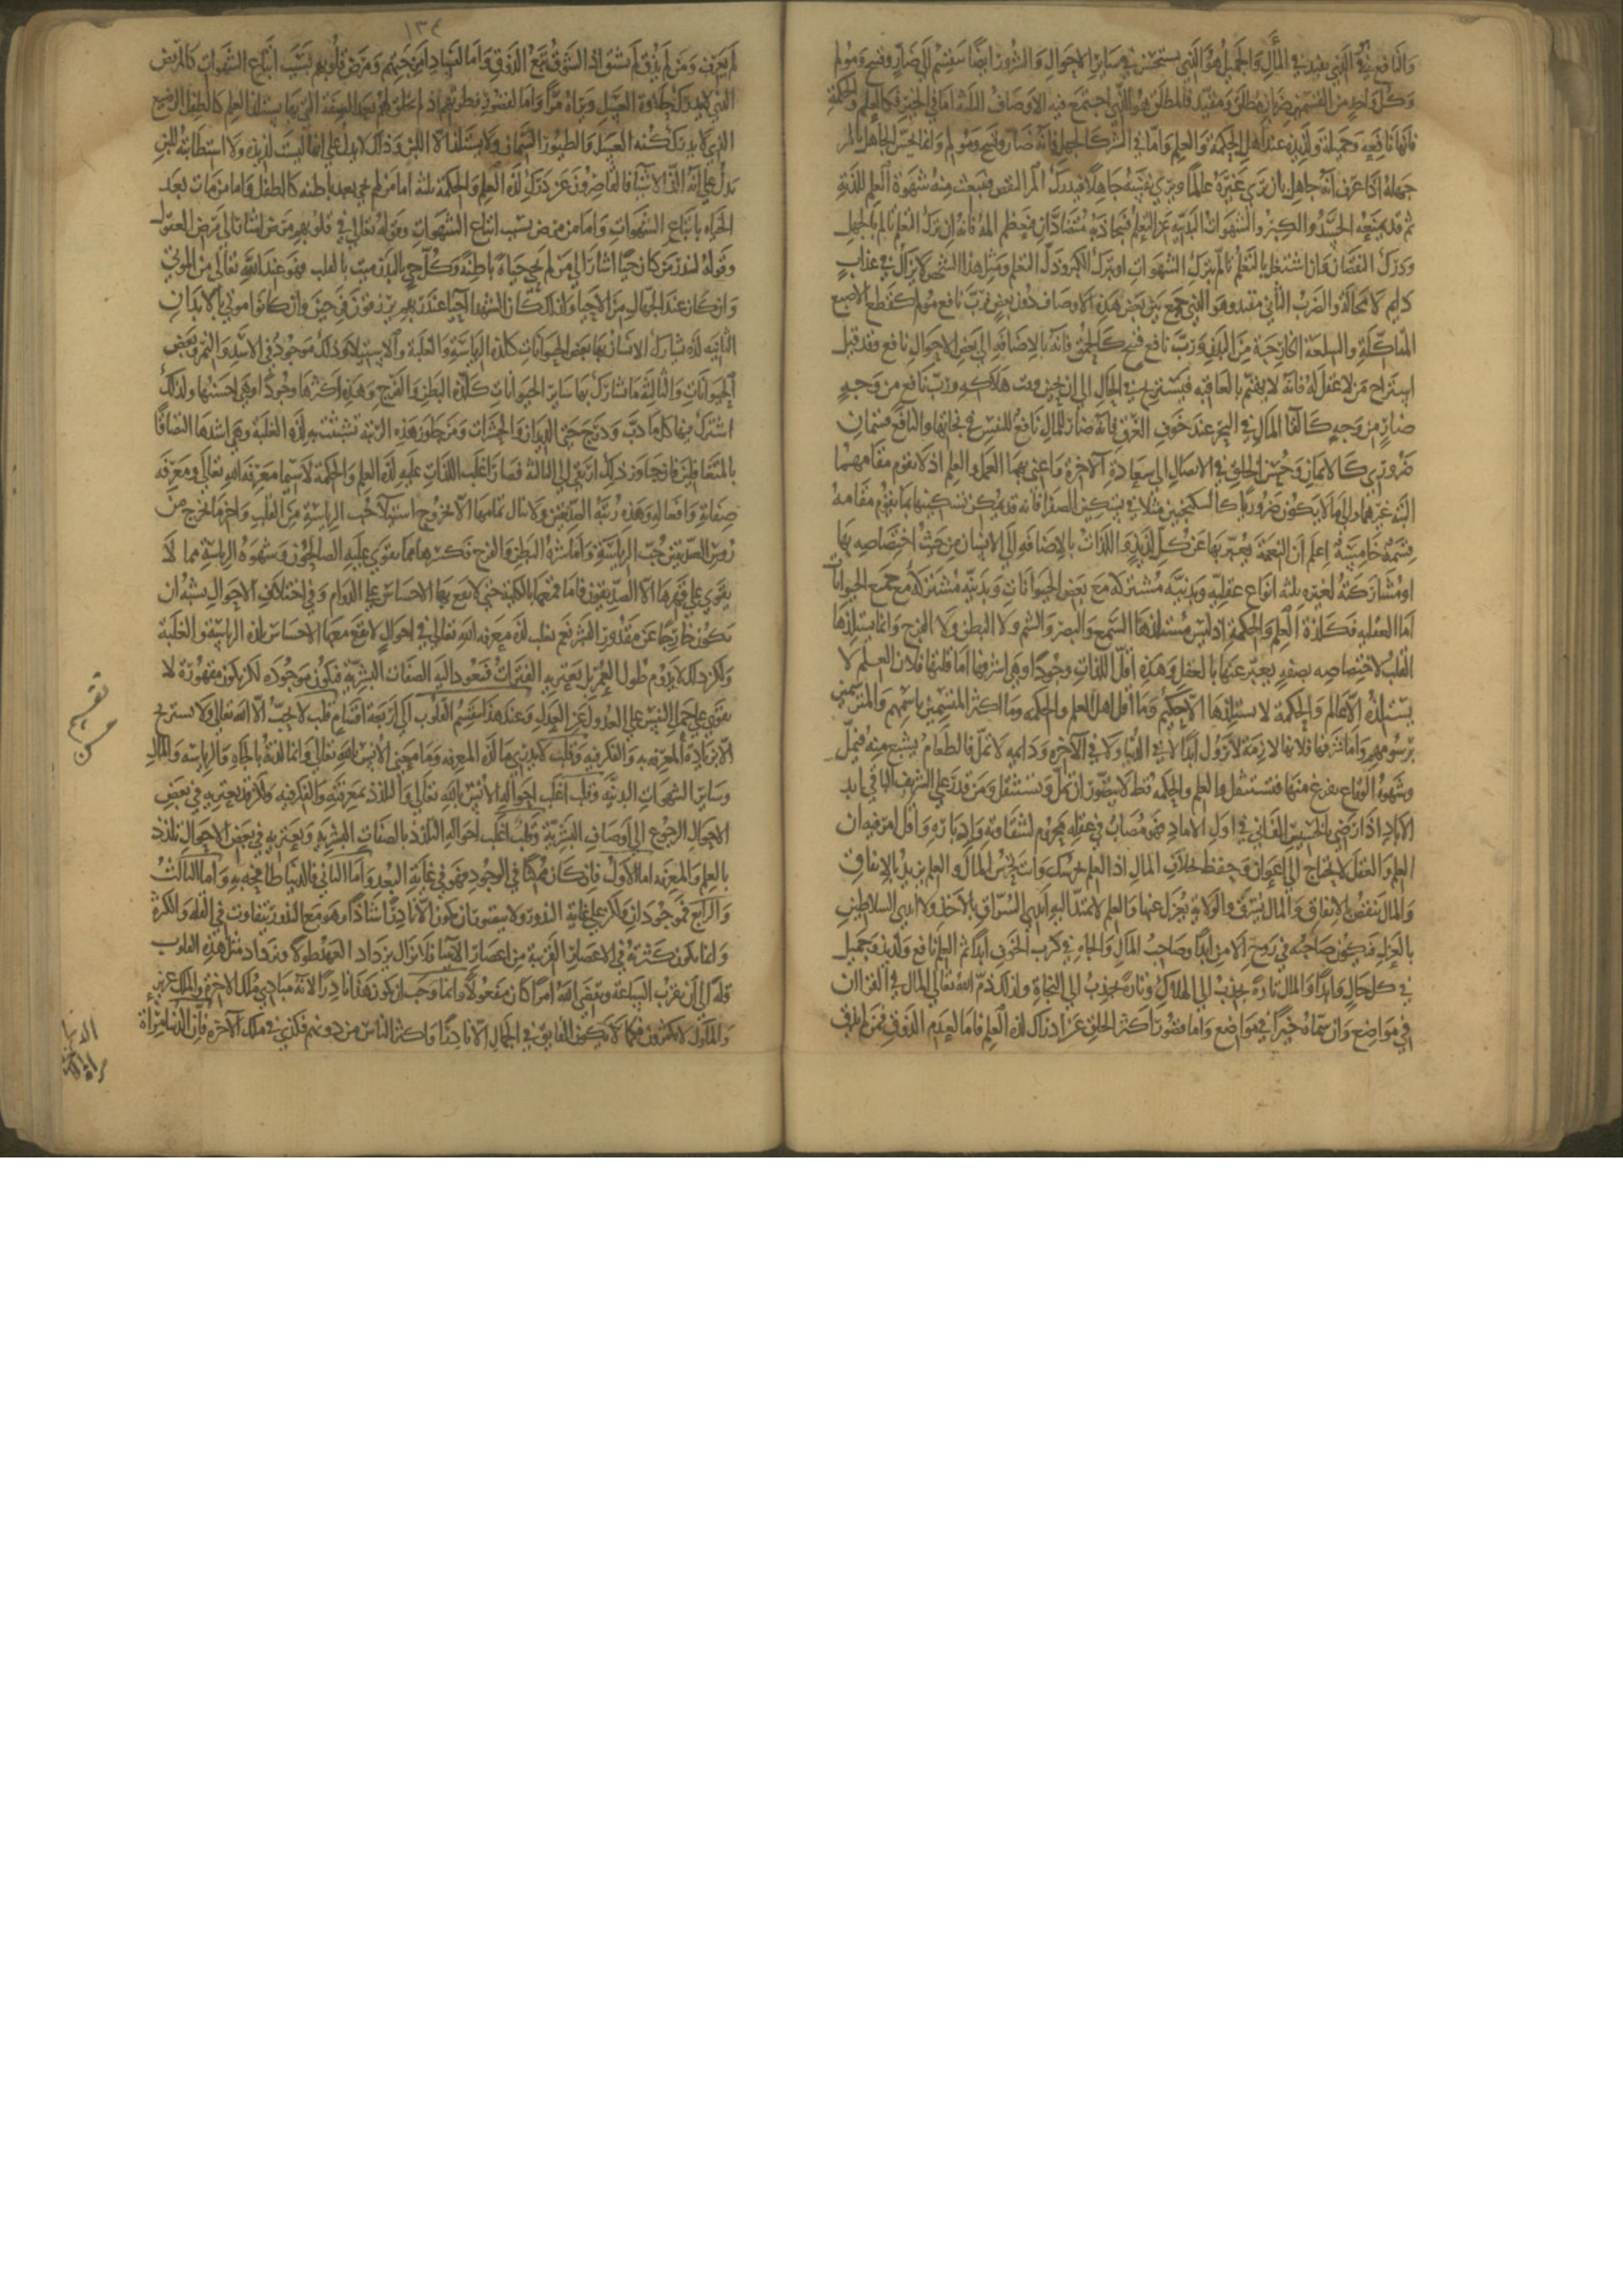 والنافع هو الذي يفيد في المآل والجميل هو الذي يستحسن في ساير الاحوال والشرور ايضا تنقسم الى ضار وقبيح ومولم
وكل واحد من القسمين ضربان مطلق ومقيد فالمطلق هو الذي اجتمع فيه الاوصاف الثلثة اما في الخير فكالعلم والحكمة
فانها نافعة وجميلة ولذيذة عند اهل الحكمة والعلم واما في الشر كالجهل فانه ضار وقبيح ومولم وانما يحس الجاهل بالم
جهله اذا عرف انه جاهل بان يرى غيره عالما ويرى نفسه جاهلا فيدرك الم النقص فينبعث منه شهوة العلم اللذيذة
ثم قد يمنعه الحسد والكبر والشهوات البدنية عن التعلم فيتجاذبه متضادان فيعظم المه فانه ان ترك التعلم تالم بالجهل
ودرك النقصان وان اشتغل بالتعلم تالم بترك الشهوات او بترك الكبر وذل التعلم ومثل هذا الشخص لا يزال في عذاب
دايم لا محالة والضرب الثاني مقيد وهو الذي جمع بين بعض هذه الاوصاف دون بعض فرب نافع مولم كقطع الاصبع
المتاكلة والسلعة الخارجة من البدن ورب نافع قبيح كالحمق فانه بالاضافة الى بعض الاحوال نافع فقد قيل
استراح من لا عقل له فانه لا يهتم بالعاقبة فيستريح في الحال الى ان يحين وقت هلاكه ورب نافع من وجه
ضار من وجه كالقا المال في البحر عند خوف الغرق فانه ضار للمال نافع للنفس في نجاتها والنافع قسمان
ضروري كالايمان وحسن الخلق في الايصال الى سعادة الآخرة واعني بهما العمل والعلم اذ لا يقوم مقامهما
البتة غيرهما والى ما لا يكون ضروريا كالسكنجبين مثلا في تسكين الصفرا فانه قد يمكن تسكينها بما يقوم مقامه
قسمة خامسة اعلم ان النعمة يعبر بها عن كل لذيذ واللذات بالاضافة الى الانسان من حيث اختصاصه بها
او مشاركته لغيره ثلثة انواع عقلية وبدنية مشتركة مع بعض الحيوانات وبدنية مشتركة مع جميع الحيوانات
اما العقلية فكلذة العلم والحكمة اذ ليس يستلذها السمع والبصر والشم ولا البطن ولا الفرج وانما يستلذها
القلب لاختصاصه بصفة يعبر عنها بالعقل وهذه اقل اللذات وجودا وهي اشرفها اما قلتها فلان العلم لا
يستلذه الا عالم والحكمة لا يستلذها الا حكيم وما اقل اهل العلم والحكمة وما اكثر المتسمين باسمهم والمترسمين
برسومهم واما شرفها فلانها لازمة لا تزول ابدا لا في الدنيا ولا في الآخرة ودايمة لا تمل فالطعام يشبع منه فيمل
وشهوة الوقاع يفرغ منها فتستثقل والعلم والحكمة قط لا يتصور ان تمل وتستثقل ومن قدر على الشريف الباقي ابد
الآباد اذا رضي بالخسيس الفاني في اول الآماد فهو مصاب في عقله محروم لشقاوته وادباره واقل امر فيه ان
العلم والعقل لا يحتاج الى اعوان وحفظة بخلاف المال اذ العلم يحرسك وانت تحرس المال والعلم يزيد بالانفاق
والمال ينقص بالانفاق والمال يسرق والولاية يعزل عنها والعلم لا تمتد اليه ايدي السراق بالاخذ ولا ايدي السلاطين
بالعزل فيكون صاحبه في روح الامن ابدا وصاحب المال والجاه في كرب الخوف ابدا ثم العلم نافع ولذيذ وجميل
في كل حال وابدا والمال تارة يجذب الى الهلاك وتارة يجذب الى النجاة ولذلك ذم الله تعالى المال في القرآن
في مواضع وان سماه خيرا في مواضع واما قصور اكثر الخلق عن ادراك لذة العلم فاما لعدم الذوق فمن لم يذق
١٣٤
لم يعرف ومن لم يذق لم يشتق اذ الشوق يتبع الذوق واما لفساد امزجتهم ومرض قلوبهم بسبب اتباع الشهوات كالمريض
الذي لا يدرك حلاوة العسل ويراه مرا واما لقصور فطنتهم اذ لم تخلق لهم بعد الصفة التي بها يستلذ العلم كالطفل الرضيع
الذي لا يدرك لذة العسل والطيور السمان ولا يستلذ الا اللبن وذلك لا يدل على انها ليست لذيذة ولا استطابته للبن
تدل على انه الذ الاشيا فالقاصرون عن درك لذة العلم والحكمة ثلثة اما من لم يحي بعد باطنه كالطفل واما من مات بعد
الحياة باتباع الشهوات واما من مرض بسبب اتباع الشهوات وقوله تعالى في قلوبهم مرض اشارة الى مرض العقول
وقوله لينذر من كان حيا اشارة الى من لم يحي حياة باطنة وكل حي بالبدن ميت بالقلب فهو عند الله تعالى من الموتى
وان كان عند الجهال من الاحيا ولذلك كان الشهدا احيا عند ربهم يرزقون فرحين وان كانوا موتى بالابدان
الثانية لذة يشارك الانسان بها بعض الحيوانات كلذة الرياسة والغلبة والاستيلا وذلك موجود في الاسد والنمر وبعض
الحيوانات والثالثة ما يشارك بها ساير الحيوانات كلذة البطن والفرج وهذه اكثرها وجودا وهي اخسها ولذلك
اشترك فيها كل ما دب ودرج حتى الديدان والحشرات ومن جاوز هذه الرتبة تشبثت به لذة الغلبة وهي اشدها التصاقا
بالمتغافلين فان جاوز ذلك ارتقى الى الثالثة فصار اغلب اللذات عليه لذة العلم والحكمة لا سيما معرفة الله تعالى ومعرفة
صفاته وافعاله وهذه رتبة الصديقين ولا ينال تمامها الا بخروج استيلا حب الرياسة من القلب واخر ما يخرج من
رؤس الصديقين حب الرياسة واما شره البطن والفرج فكسرهما مما يقوى عليه الصالحون وشهوة الرياسة مما لا
يقوى على قهرها الا الصديقون فاما قمعها بالكلية حتى لا يقع بها الاحساس على الدوام وفي اختلاف الاحوال يشبه ان
يكون خارجا عن مقدور البشر نعم يغلب لذة معرفة الله تعالى في احوال لا يقع معها الاحساس بلذة الرياسة والغلبة
ولكن ذلك لا يدوم طول العمر بل يعتريه الفترات فتعود اليه الصفات البشرية فتكون موجودة لكن يكون مقهورة لا
يقوى على حمل النفس على العدول عن العدل وعند هذا ينقسم القلوب الى اربعة اقسام قلب لا يحب الا الله تعالى ولا يستريح
الا بزيادة المعرفة به والفكر فيه وقلب لا يدري ما لذة المعرفة وما معنى الانس بالله تعالى وانما لذته بالجاه والرياسة والمال
وساير الشهوات البدنية وقلب اغلب احواله الانس بالله تعالى والتلذذ بمعرفته والفكر فيه ولكن قد يعتريه في بعض
الاحوال الرجوع الى اوصاف البشرية وقلب اغلب احواله التلذذ بالصفات البشرية ويعتريه في بعض الاحوال تلذذ
بالعلم والمعرفة اما الاول فان كان ممكنا في الوجود فهو في غاية البعد واما الثاني فالدنيا طافحة به واما الثالث
والرابع فموجودان ولكن على غاية الندور ولا يتصور ان يكون الا نادرا شاذا وهو مع الندور يتفاوت في القلة والكثرة
وانما يكون كثرته في الاعصار القريبة من اعصار الانبيا فلا يزال يزداد العهد طولا ويزداد مثل هذه القلوب
قلة الى ان يقرب الساعة ويقضي الله امرا كان مفعولا وانما وجب ان يكون هذا نادرا لانه مبادي ملك الاخرة والملك عزيز
والملوك لا يكثرون فكما لا يكون الفايق في الجمال الا نادرا واكثر الناس من دونهم فكذى في ملك الآخرة فان الدنيا مرآة
تقسيم
حسن
الدنيا
مرآة الآخرة